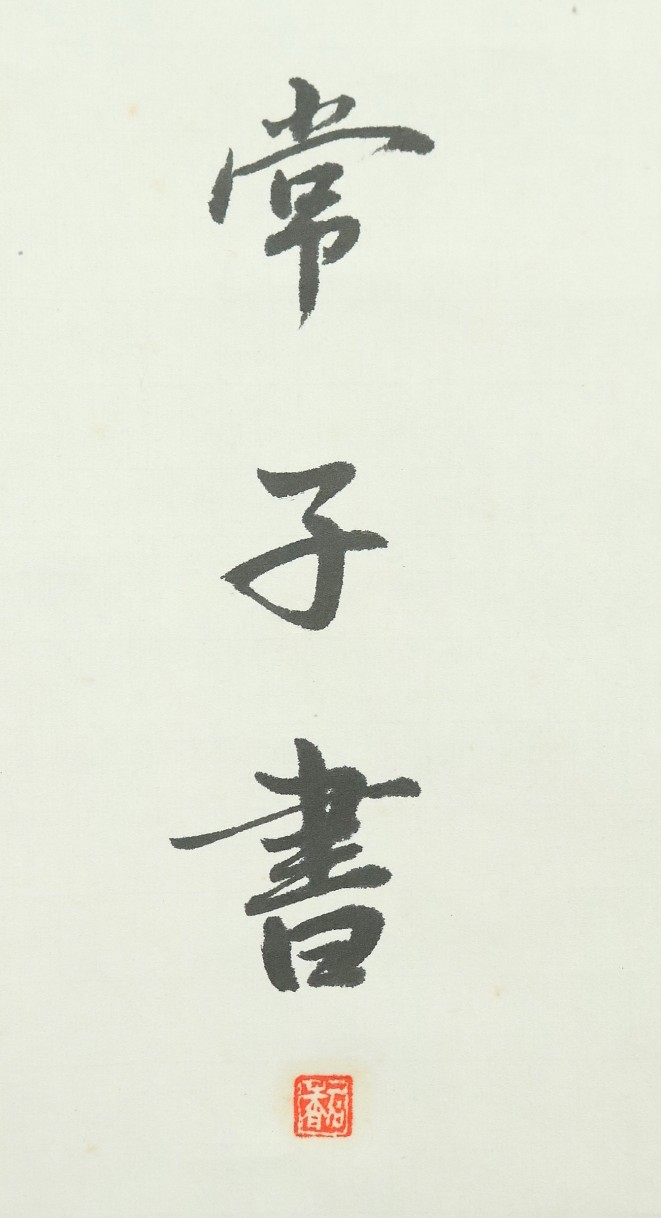 常子書